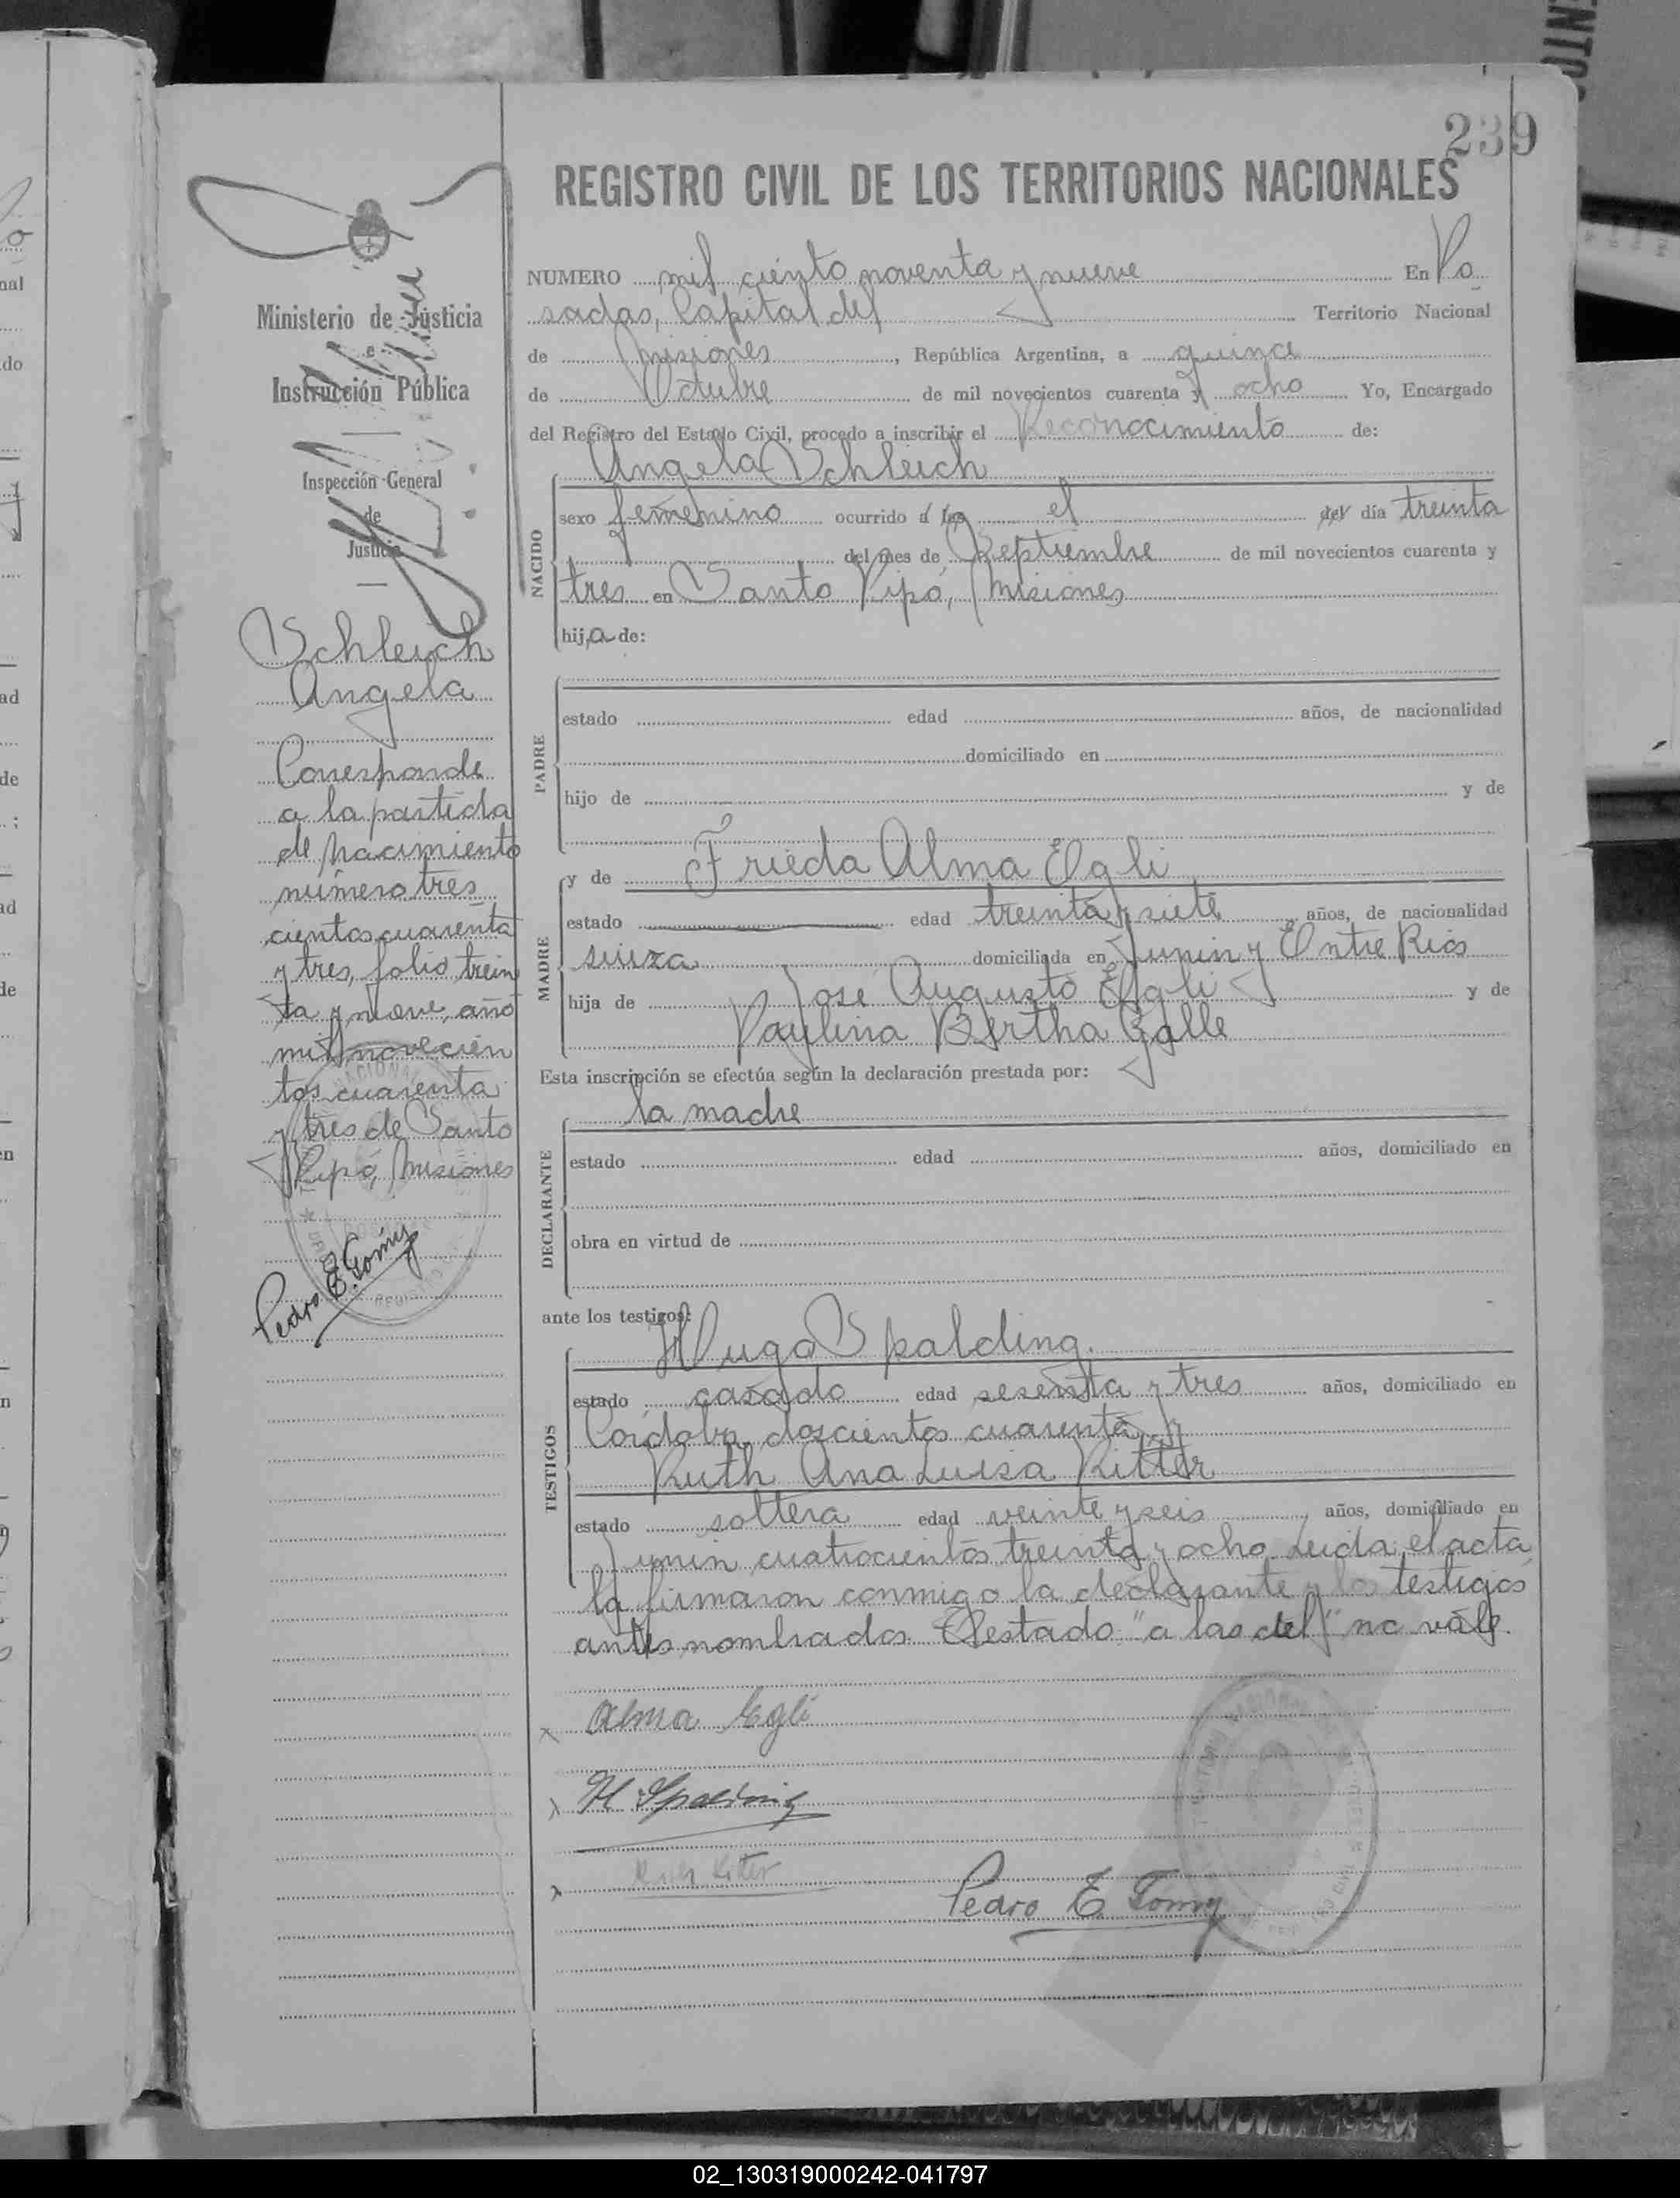 239
REGISTRO CIVIL DE LOS TERRITORIOS NACIONALES
Ministerio de Justicia
e
Instrucción Pública
Inspección General
de
Justicia
Schleich
Angela
Corresponde
a la partida
de nacimiento
número tres
cientos cuarenta
y tres, folio trein
ta y nueve, año
mil novecien
tos cuarenta
y tres de Santo
Pipó, Misiones
Pedro E. Gomy
NUMERO mil ciento noventa y nueve En Po
sadas, Capital del Territorio Nacional
de Misiones, República Argentina, a quince
de Octubre de mil novecientos cuarenta y ocho Yo, Encargado
del Registro del Estado Civil, procedo a inscribir el Reconocimiento de:
Angela Schleich
NACIDO
sexo femenino ocurrido a las el del día treinta
del mes de Septiembre de mil novecientos cuarenta y
tres en Santo Pipó, Misiones
hija de:
PADRE
estado edad años, de nacionalidad
domiciliado en
hijo de y de
MADRE
y de Frieda Alma Egli
estado edad treinta y siete años, de nacionalidad
suiza domiciliada en Junin y Entre Rios
hija de José Augusto Egli y de
Paulina Bertha Galle
Esta inscripción se efectúa según la declaración prestada por:
la madre
DECLARANTE
estado edad años, domiciliado en
obra en virtud de
ante los testigos:
TESTIGOS
Hugo Spalding.
estado casado edad sesenta y tres años, domiciliado en
Córdoba doscientos cuarenta y
Ruth Ana Luisa Ritter
estado soltera edad veinte y seis años, domiciliado en
Junin cuatrocientos treinta y ocho Leida el acta
la firmaron conmigo la declarante y los testigos
antes nombrados Testado "a las del" no vale.
x Alma Egli
x H Spalding
x Ruth Ritter
Pedro E. Gomy
02_130319000242-041797